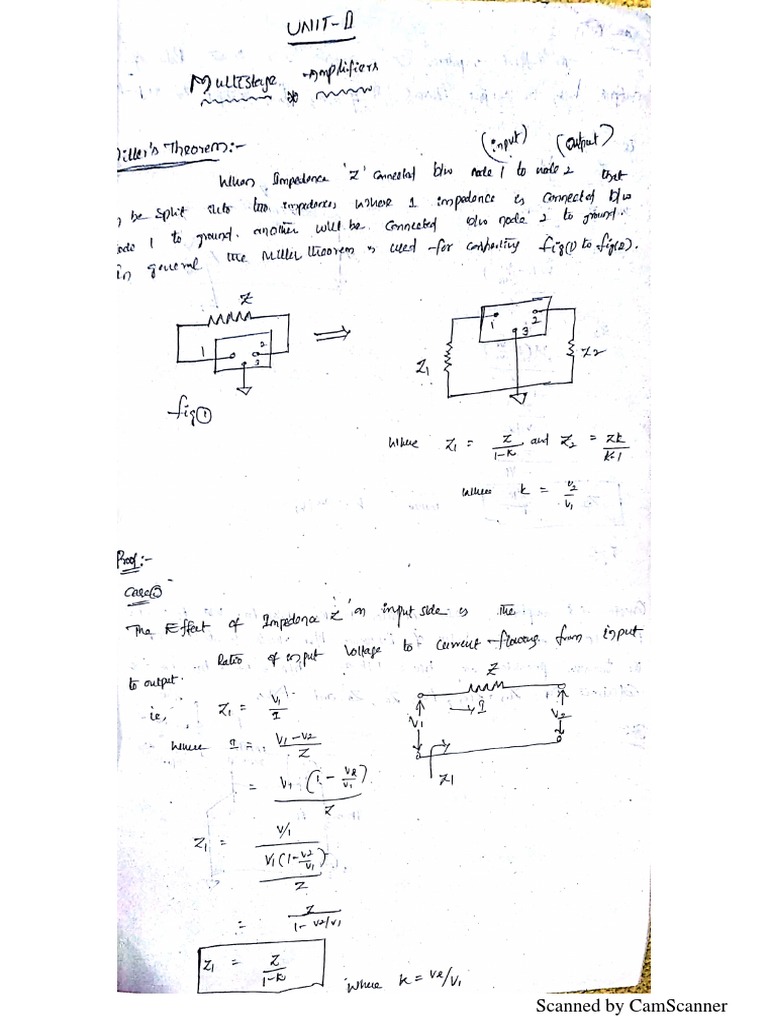 UNIT-II
Multistage Amplifiers
Miller's Theorem:-
(input) (output)
When Impedance 'Z' connected b/w node 1 to node 2 that
be split into two impedances where 1 impedance is connected b/w
node 1 to ground. another will be connected b/w node 2 to ground.
in general the Miller theorem is used for converting fig(1) to fig(2).
Z
1 2 3
1 2 3
Z1
Z2
fig①
where Z1 = Z/1-K and Z2 = ZK/K-1
where k = V2/V1
Proof:-
Case①
The Effect of Impedance 'Z' on input side is the
Ratio of input voltage to current flowing from input
to output.
Z
ie, Z1 = V1/I
I
V1
V2
where I = V1-V2/Z
Z1
= V1 (1 - V2/V1)/Z
Z1 = V1/V1(1-V2/V1)/Z
= Z/1-V2/V1
Z1 = Z/1-K where K = V2/V1
Scanned by CamScanner